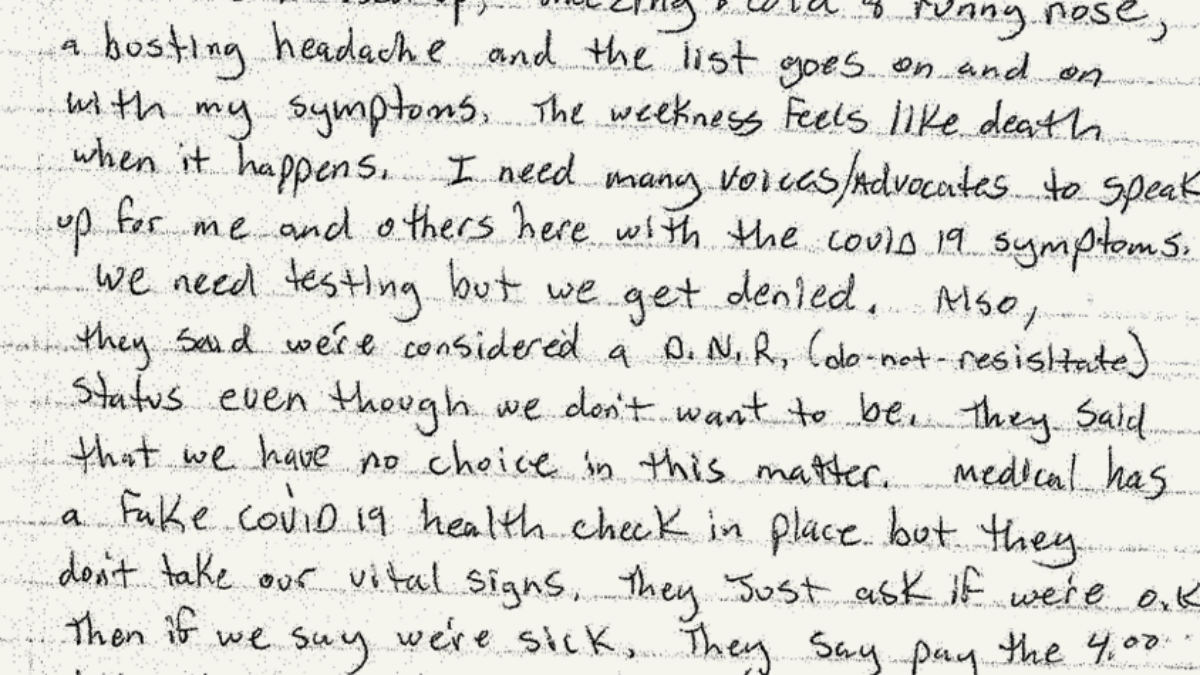 up, sneezing, a cold & runny nose,
a bosting headache and the list goes on and on
with my symptoms. The weekness feels like death
when it happens. I need many voices/Advocates to speak
up for me and others here with the covid 19 symptoms.
we need testing but we get denied. Also,
they said we're considered a D.N.R. (do-not-resisitate)
status even though we don't want to be. They said
that we have no choice in this matter. Medical has
a fake covid 19 health check in place but they
don't take our vital signs. They Just ask if we're o.k
Then if we say we're sick, They say pay the 4.00